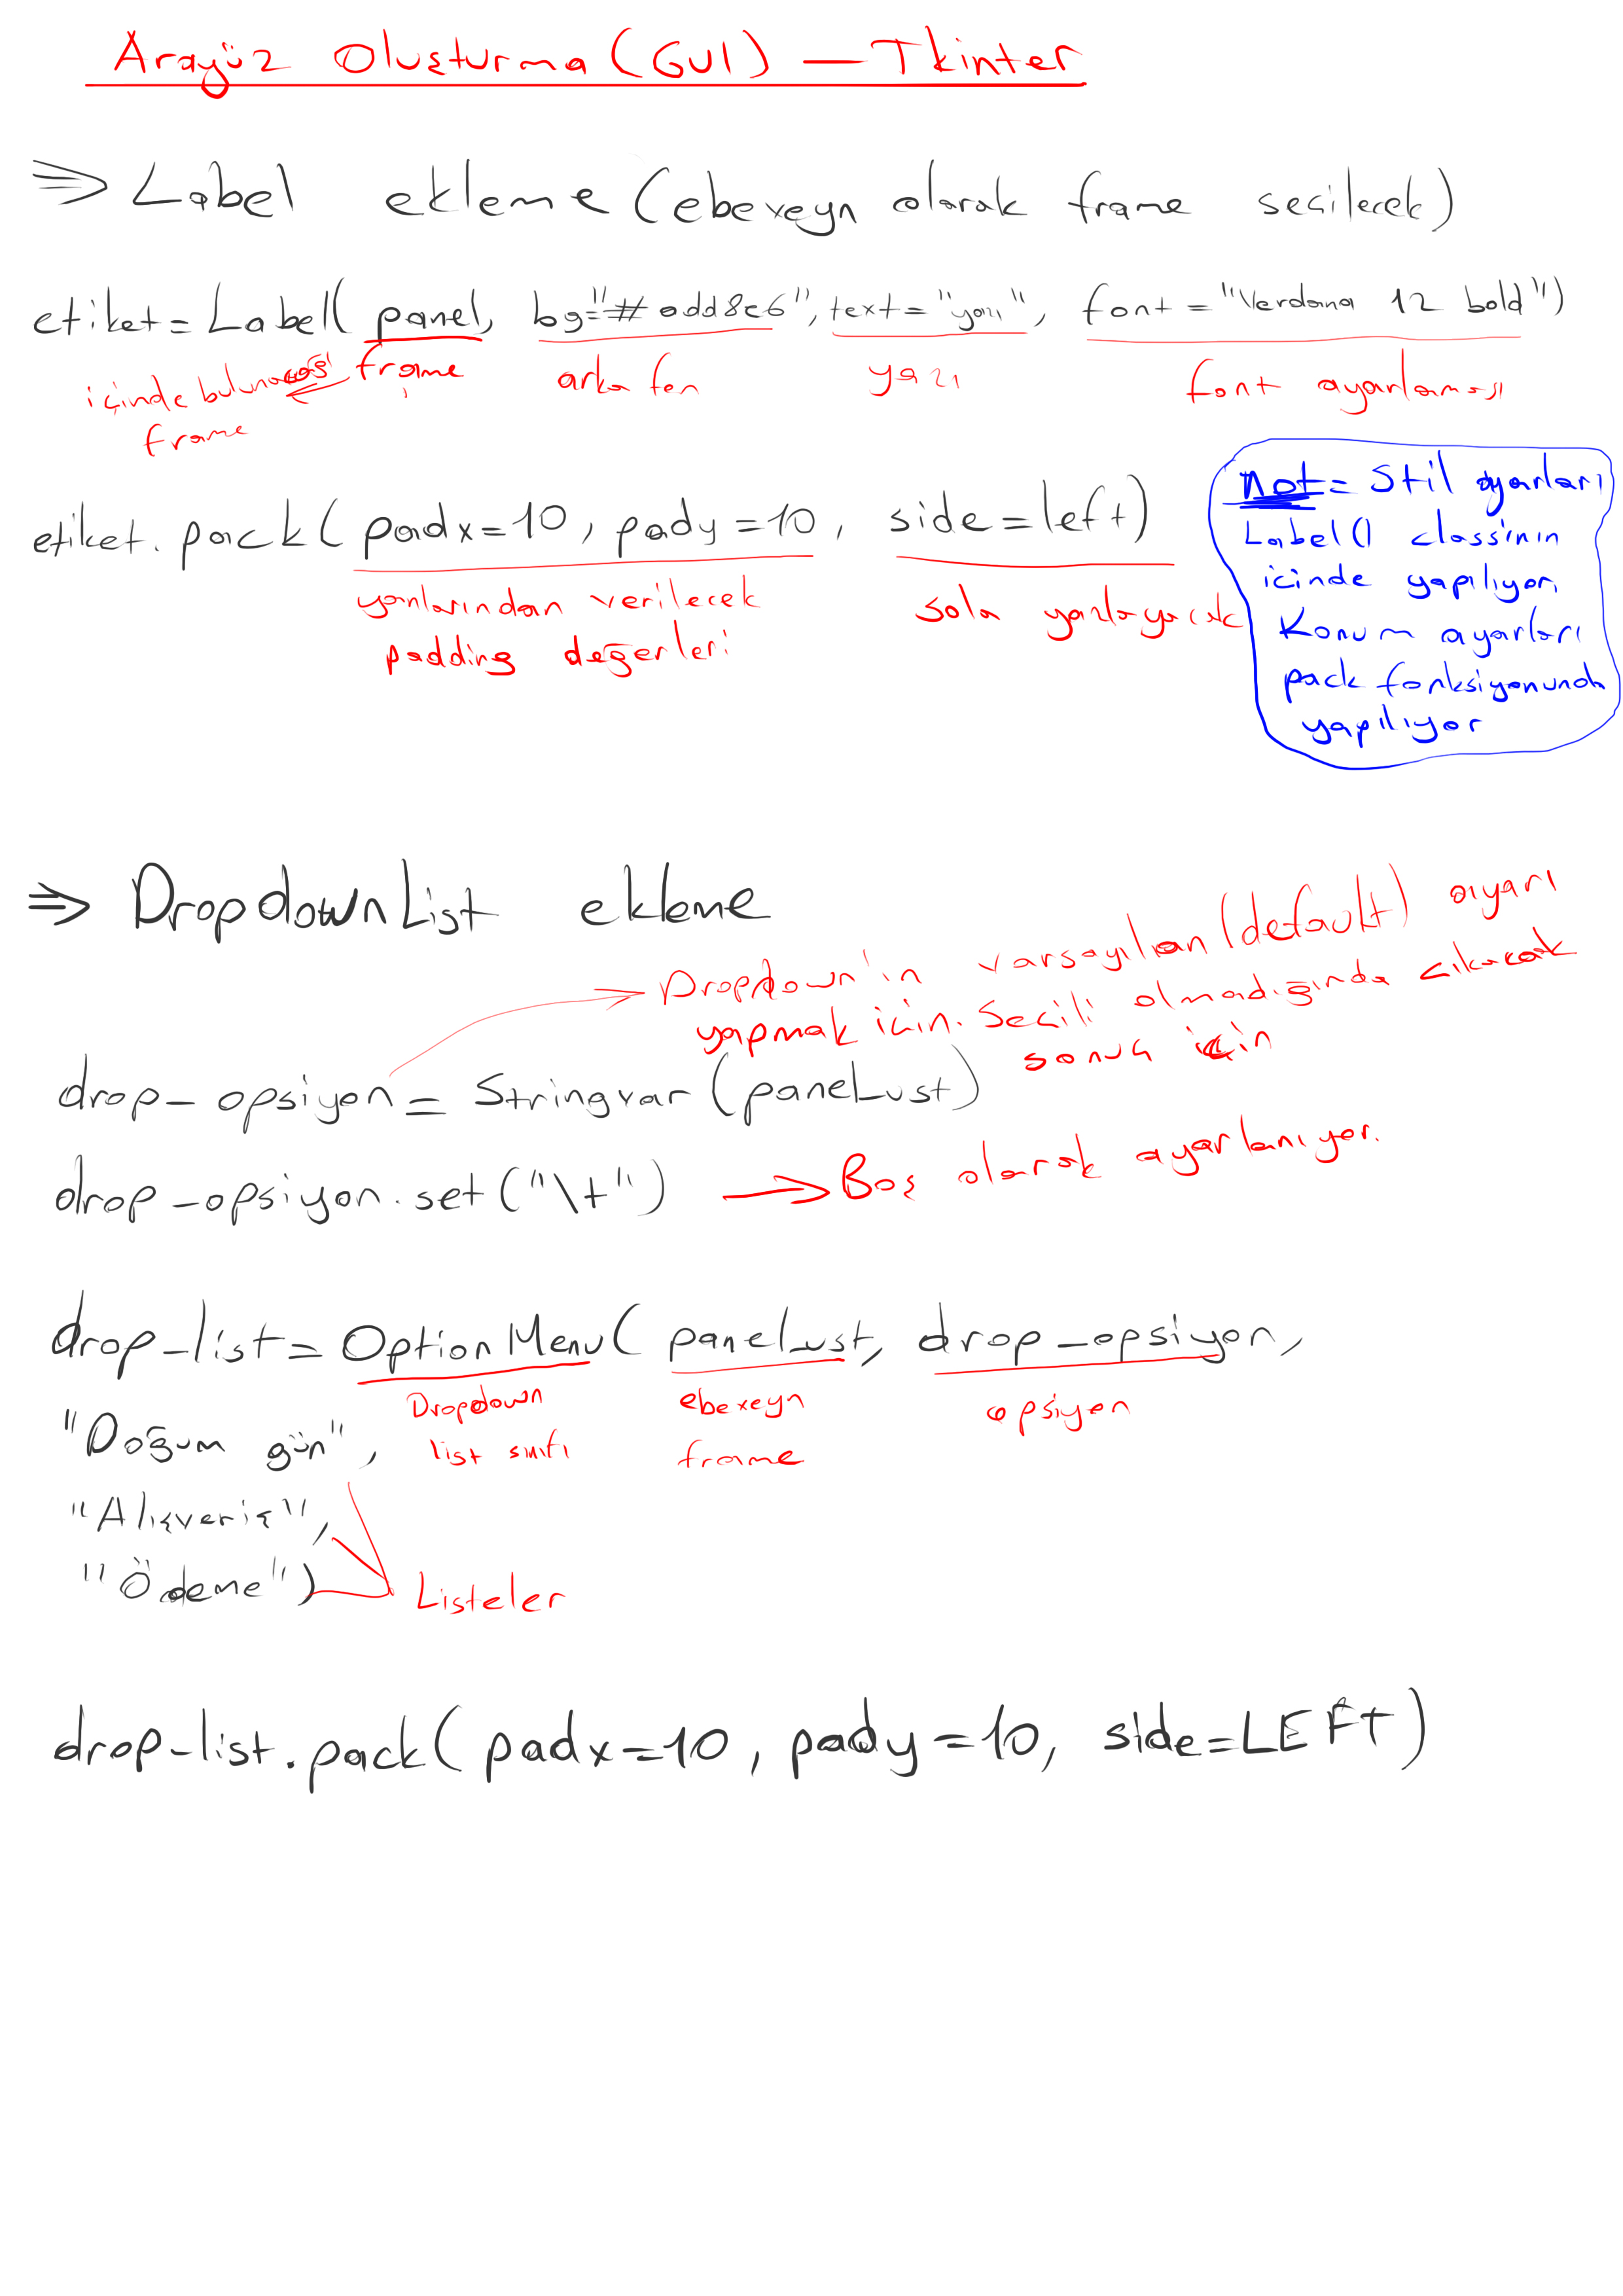 Arayüz Oluşturma (GUI) — Tkinter
⇒ Label ekleme (ebeveyn olarak frame seçilecek)
etiket = Label( panel, bg="#add8e6", text="yazı", font="Verdana 12 bold")
içinde bulunacağı ← frame
frame
arka fon
yazı
font ayarlaması
etiket.pack( padx=10, pady=10, side=left)
yanlarından verilecek
padding değerleri
sola yaslayacak
not = Stil ayarları
Label() classının
içinde yapılıyor,
Konum ayarları
pack fonksiyonunda
yapılıyor
⇒ DropdownList ekleme
→ Dropdown'ın varsayılan (default) ayarı
yapmak için. Seçili olmadığında çıkacak
sonuç için
drop_opsiyon = Stringvar (panel_ust)
drop_opsiyon.set("\t") → Boş olarak ayarlanıyor.
drop-list = OptionMenu( panel_ust, drop_opsiyon,
Dropdown ebeveyn opsiyon
list sınıfı frame
"Doğum gün",
"Alışveriş",
"Ödeme")
Listeler
drop-list.pack( padx=10, pady=10, side=LEFT)